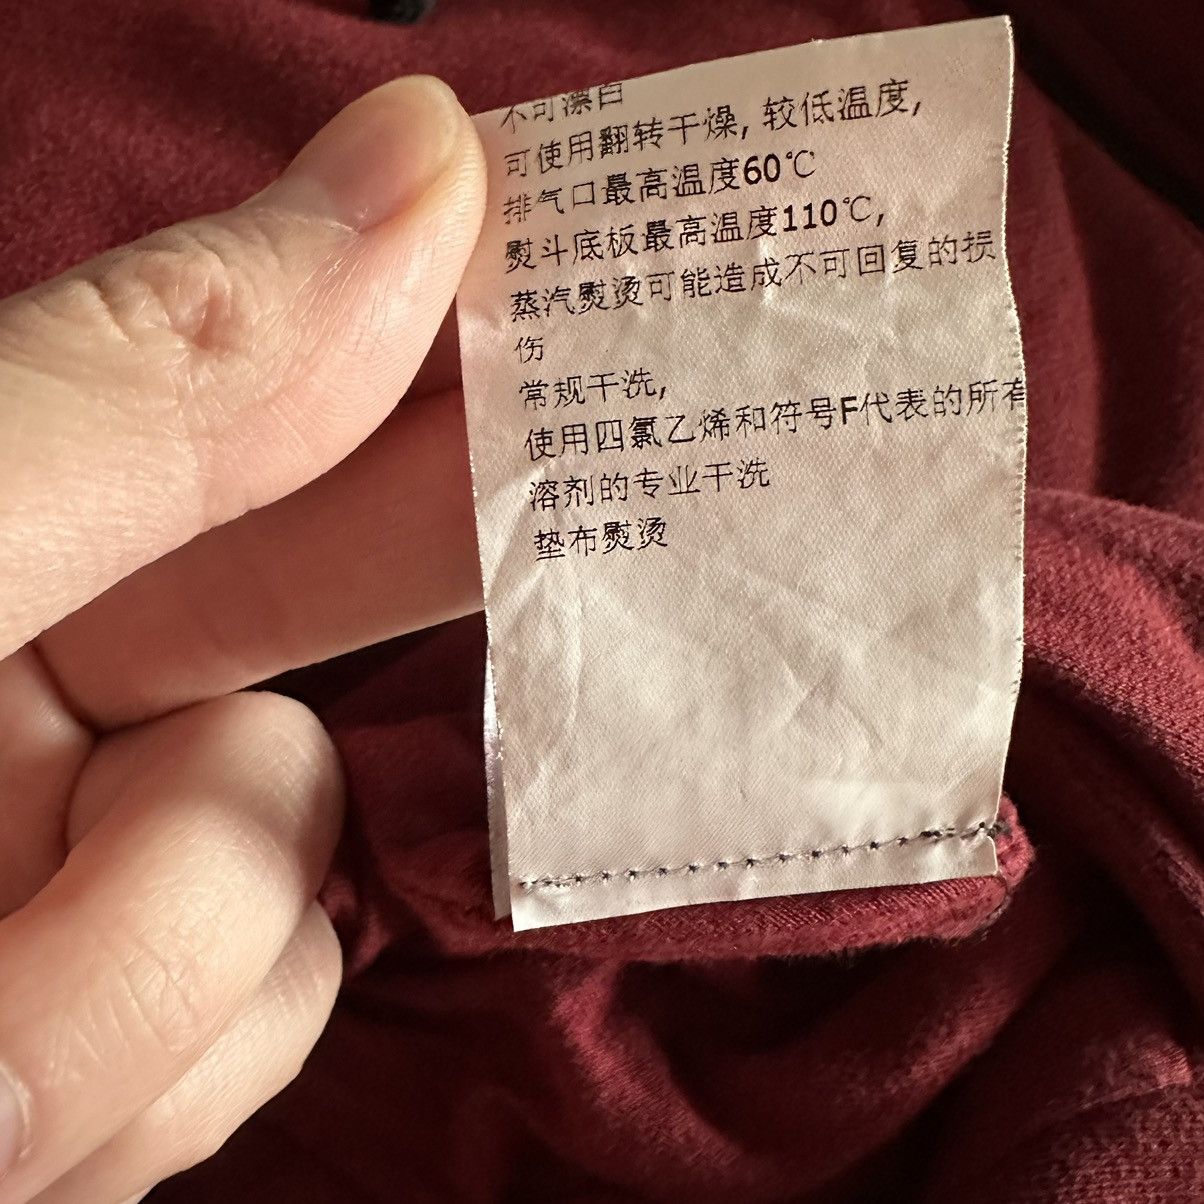 不可漂白
可使用翻转干燥, 较低温度,
排气口最高温度60℃
熨斗底板最高温度110℃,
蒸汽熨烫可能造成不可回复的损
伤
常规干洗,
使用四氯乙烯和符号F代表的所有
溶剂的专业干洗
垫布熨烫